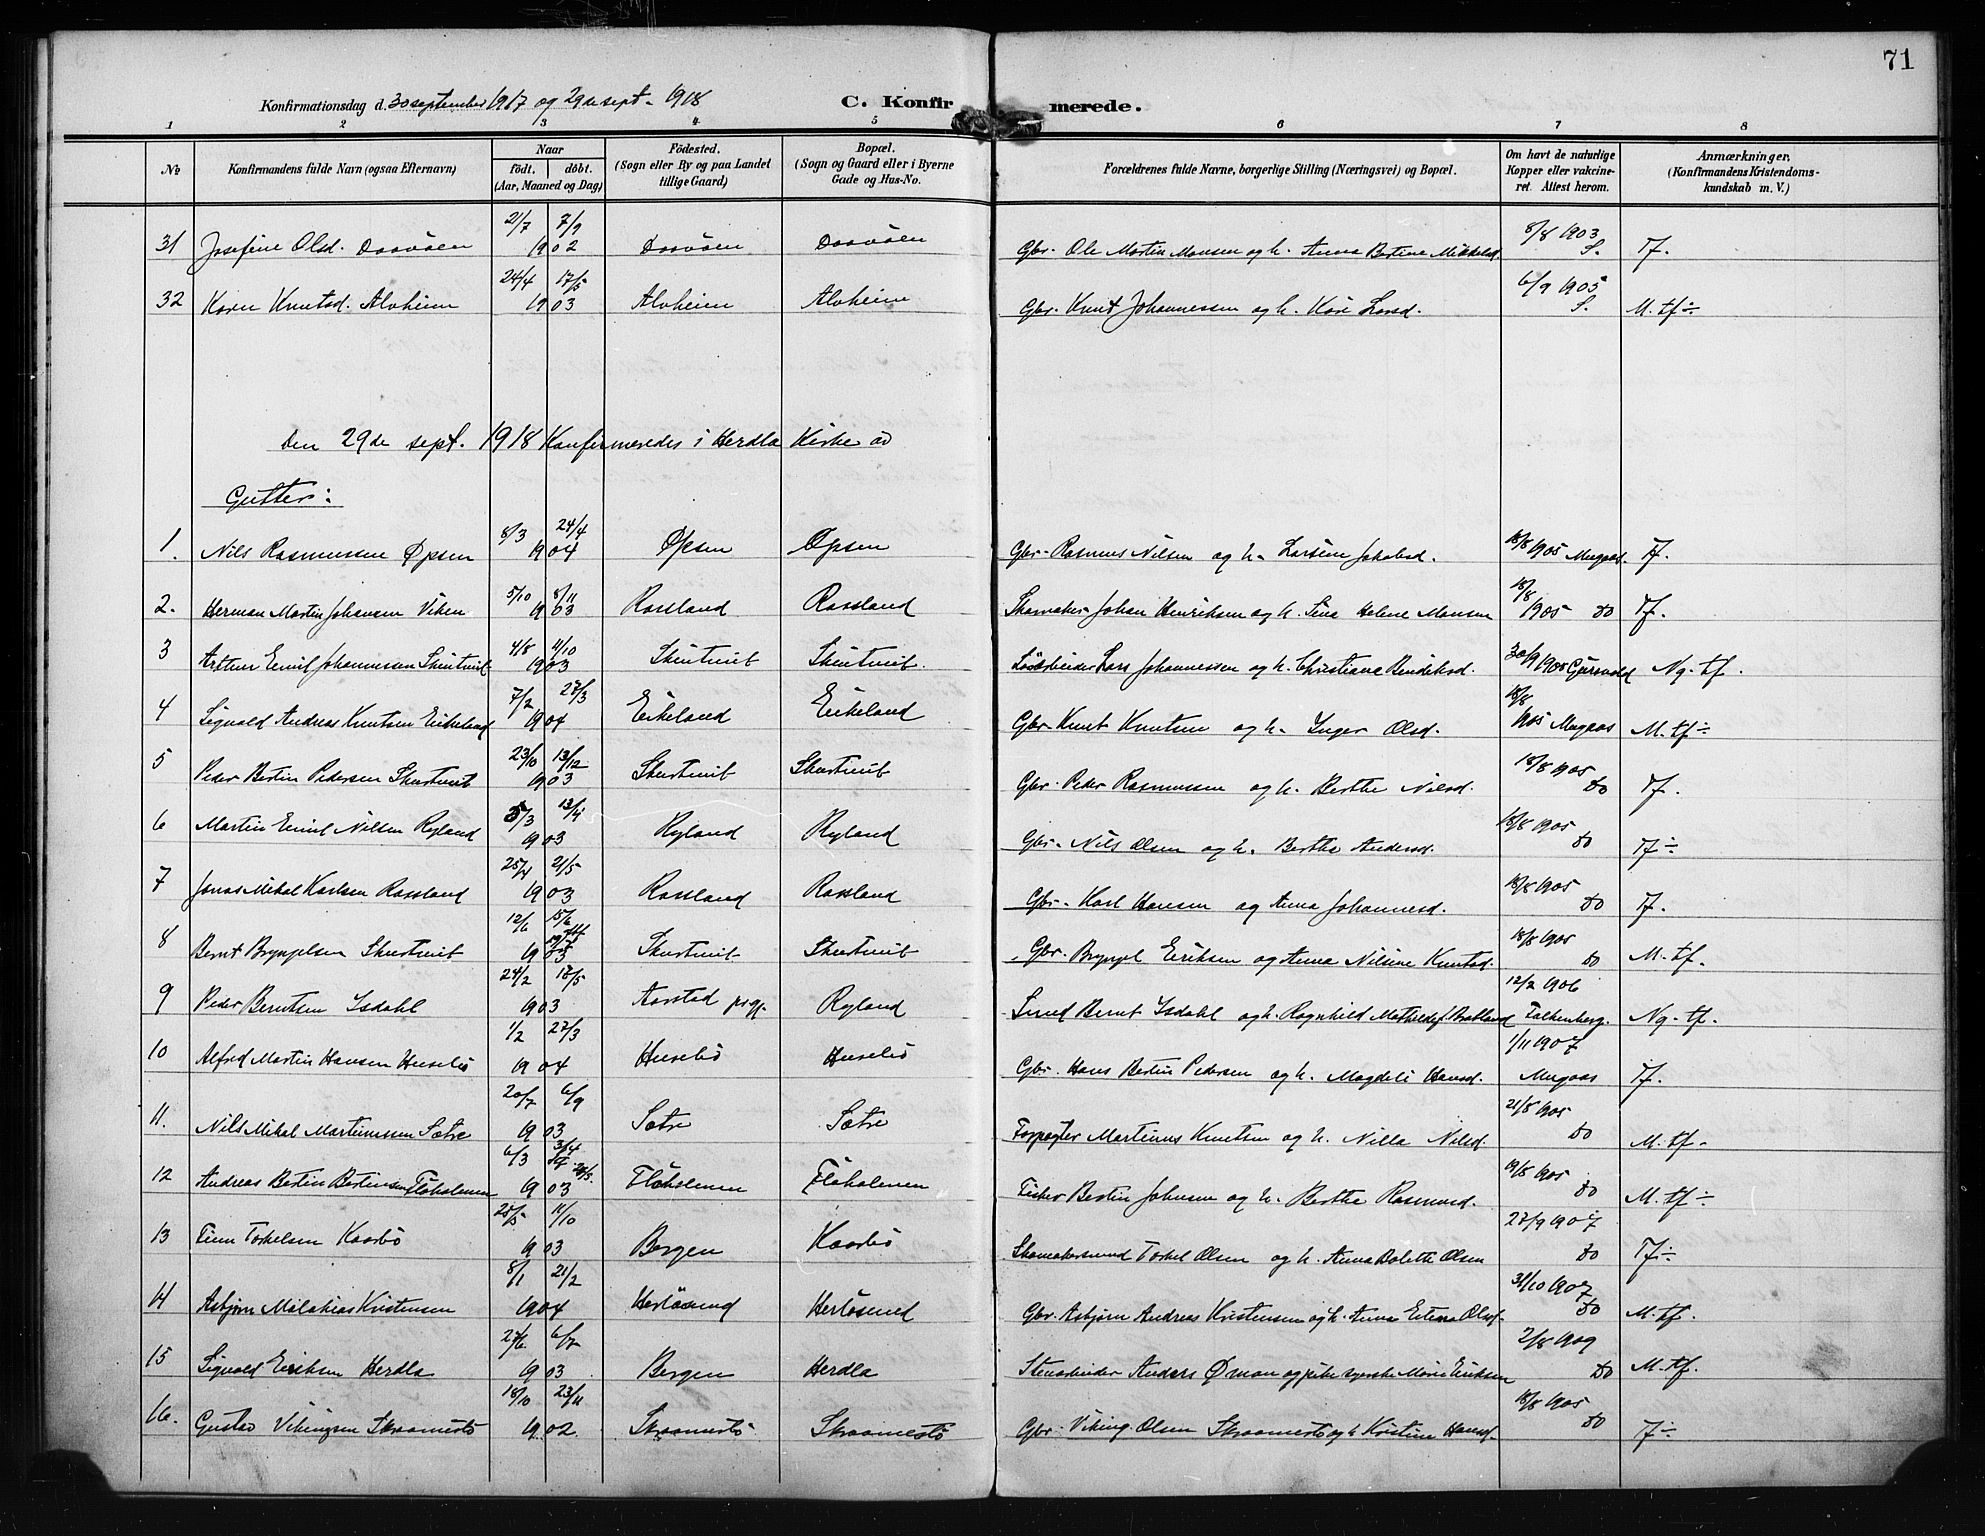 71
Konfirmationsdag d. 30 september 1917 og 29de sept. 1918 C. Konfirmerede.
1 2 3 4 5 6 7 8
No Konfirmandens fulde Navn (ogsaa Efternavn) Naar født. døbt. (Aar, Maaned og Dag) Fødested. (Sogn eller By og paa Landet tillige Gaard) Bopæl. (Sogn og Gaard eller i Byerne Gade og Hus-No. Forældrenes fulde Navne, borgerlige Stilling (Næringsvei) og Bopæl. Om havt de naturlige Kopper eller vakcineret. Attest herom. Anmærkninger. (Konfirmandens Kristendomskundskab m. V.)
31 Josefine Olsd. Daavöen 21/7 7/9 1902 Daavöen Daavöen Gbr. Ole Martin Monsen og h. Anna Bertine Mikkelsd. 8/8 1903 S. Tf.
32 Karen Knutsd. Alvheim 24/4 17/5 1903 Alvheim Alvheim Gbr. Knut Johannessen og h. Kari Larsd. 6/9 1905 S. M. tf÷
Den 29de sept. 1918 Konfirmeredes i Herdla Kirke av
Gutter:
1. Nils Rasmussen Øpsen 8/3 24/4 1904 Øpsen Øpsen Gbr. Rasmus Nilsen og h. Larsine Jakobsd. 18/8 1905 Mugaas. Tf.
2. Herman Martin Johansen Viken 5/10 8/11 1903 Rossland Rossland Skomaker Johan Henriksen og h. Sina Helene Monsen 18/8 1905 do Tf.
3 Arthur Emil Johannessen Skurtveit 4/8 11/10 1903 Skurtveit Skurtveit. Lars Johannessen og h. Christiane Bendiksd. 30/9 1905 Ng. tf.
4 Sigvald Andreas Knutsen Eikeland 7/2 27/3 1904 Eikeland Eikeland Gbr. Knut Knutsen og h. Inger Olsd. 18/8 1905 Mugaas M. tf÷
5 Peder Bertin Pedersen Skurtveit 23/10 13/12 1903 Skurtveit Skurtveit Gbr. Peder Rasmussen og h. Berthe Nilsd. 18/8 1905 do Tf.
6 Martin Emil Nilsen Ryland 5/3 13/4 1903 Ryland Ryland Gbr. Nils Olsen og h. Berthe Andersd. 18/8 1905 do Tf÷
7 Jonas Mikal Karlsen Rossland 25/4 21/5 1903 Rossland Rossland Gbr. Karl Hansen og Anna Johannesd. 18/8 1905 do Tf.
8 Bernt Brynjelsen Skurtveit 12/6 1903 Skurtveit Skurtveit Gbr. Brynjel Eriksen og Anna Nilsine Knutsd. 18/8 1905 do M. tf.
9 Peder Berntsen Isdahl 24/2 17/5 1903 Aarstad prgj. Ryland Smed Bernt Isdahl og h. Ragnhild Mathilde 12/2 1906 Falkenberg. Ng. tf.
10 Alfred Martin Hansen Husebö 1/2 27/3 1904 Husebö Husebö Gbr. Hans Bertin Pedersen og h. Magdeli Hansd. 1/11 1907 Mugaas Tf.
11. Nils Mikal Martinussen Sætre 20/7 6/9 1903 Sætre Sætre Forpagter Martinus Knutsen og h. Nilla Nilsd. 21/8 1905 do M. tf.
12 Andreas Bertin Bertinsen Flöholmen 6/3 1903 Flöholmen Flöholmen Fisker Bertin Johnsen og h. Berthe Rasmusd. 19/8 1905 do M. tf÷
13 Finn Torkelsen Kaarbö 25/5 11/10 1903 Bergen Kaarbö Skomakersvend Torkel Olsen og h. Anna Bolette Olsen 27/9 1907 do Tf÷
14 Asbjørn Malakias Kristensen 8/1 21/2 1904 Herlösund Herlösund Gbr. Asbjørn Andreas Kristensen og h. Anna Olsd. 31/10 1907 do M. tf.
15 Sigvald Eriksen Herdla 27/6 6/7 1903 Bergen Herdla Stenarbeider Anders Øman og pike syerske Marie Eriksen 2/8 1909 do M. tf.
16. Gustav Vikingsen Skraamestö 18/10 23/11 1902 Skraamestö Skraamestö Gbr. Viking Olsen Skraamestö og h. Kristine Hansd. 18/8 1905 do Tf÷